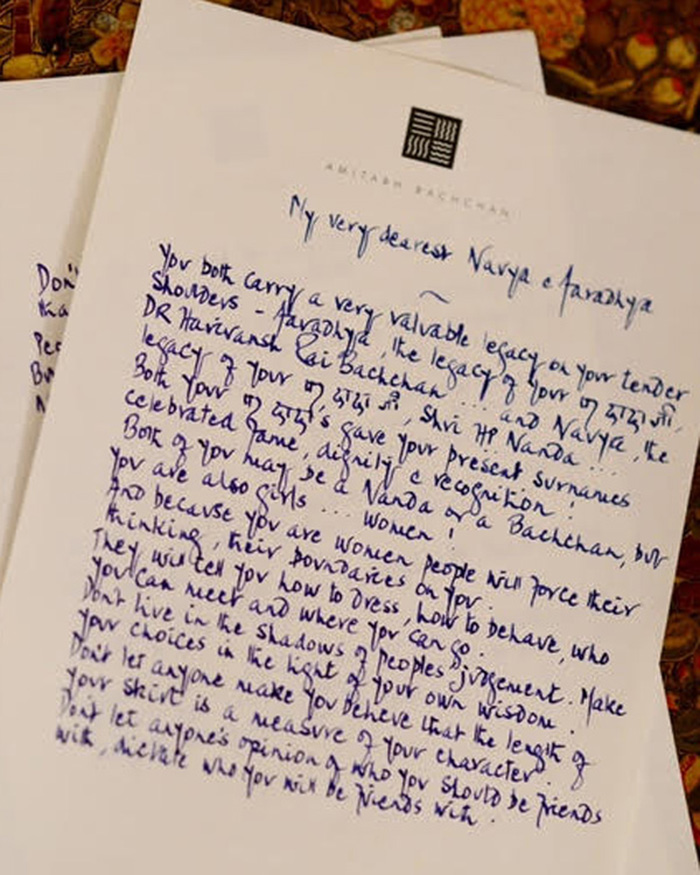 AMITABH BACHCHAN
My very dearest Navya & Aaradhya
You both carry a very valuable legacy on your tender
shoulders - Aaradhya, the legacy of your पर दादा जी,
DR Harivansh Rai Bachchan ... and Navya, the
legacy of your पर दादा जी, Shri HP Nanda ...
Both your पर दादा's gave your present surnames
celebrated fame, dignity & recognition !
Both of you may be a Nanda or a Bachchan, but
you are also girls ... women !
And because you are women people will force their
thinking, their boundaries on you.
They will tell you how to dress, how to behave, who
you can meet and where you can go.
Don't live in the shadows of peoples judgement. Make
your choices in the light of your own wisdom.
Don't let anyone make you believe that the length of
your skirt is a measure of your character.
Don't let anyone's opinion of who you should be friends
with, dictate who you will be friends with.
Don'
tha